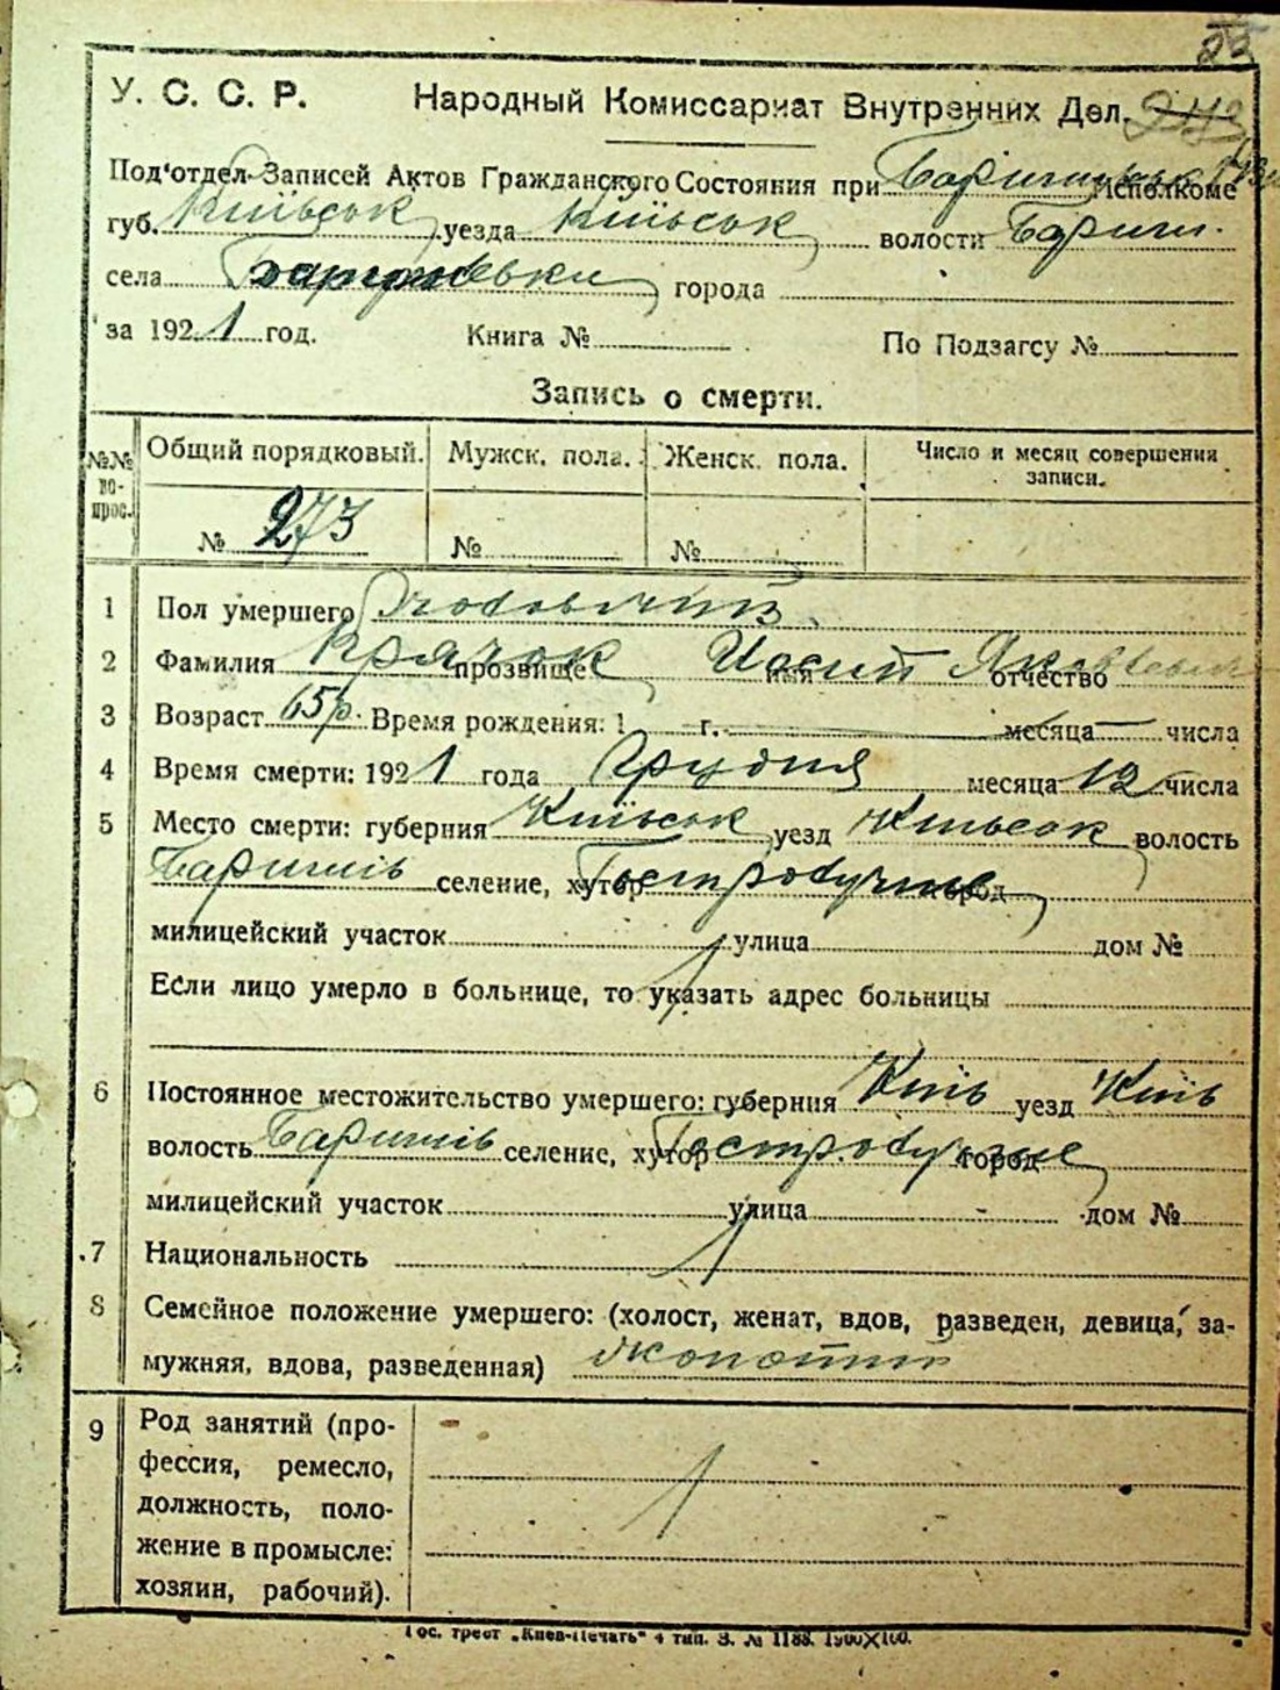 У. С. С. Р. Народный Комиссариат Внутренних Дел.
Под'отдел Записей Актов Гражданского Состояния при Исполкоме
губ. Київськ уезда Київськ волости Бариш.
села города
за 1921 год. Книга № По Подзагсу №
Запись о смерти.
№№ вопрос. Общий порядковый. Мужск. пола. Женск. пола. Число и месяц совершения записи.
№ 273 № №
1 Пол умершего Чоловичий
2 Фамилия Крячок прозвище имя Иосип отчество Якович
3 Возраст 65 р. Время рождения: 1 г. месяца числа
4 Время смерти: 1921 года Грудня месяца 12 числа
5 Место смерти: губерния Київськ уезд Київськ волость
Баришів селение, хутор Гостролучче город
милицейский участок улица дом №
Если лицо умерло в больнице, то указать адрес больницы
6 Постоянное местожительство умершего: губерния Київ уезд Київ
волость Баришів селение, хутор Гостролучче город
милицейский участок улица дом №
7 Национальность
8 Семейное положение умершего: (холост, женат, вдов, разведен, девица, за-
мужняя, вдова, разведенная)
9 Род занятий (про-
фессия, ремесло,
должность, поло-
жение в промысле:
хозяин, рабочий).
Гос. трест „Киев-Печать" 4 тип. З. № 1188. 1900×100.